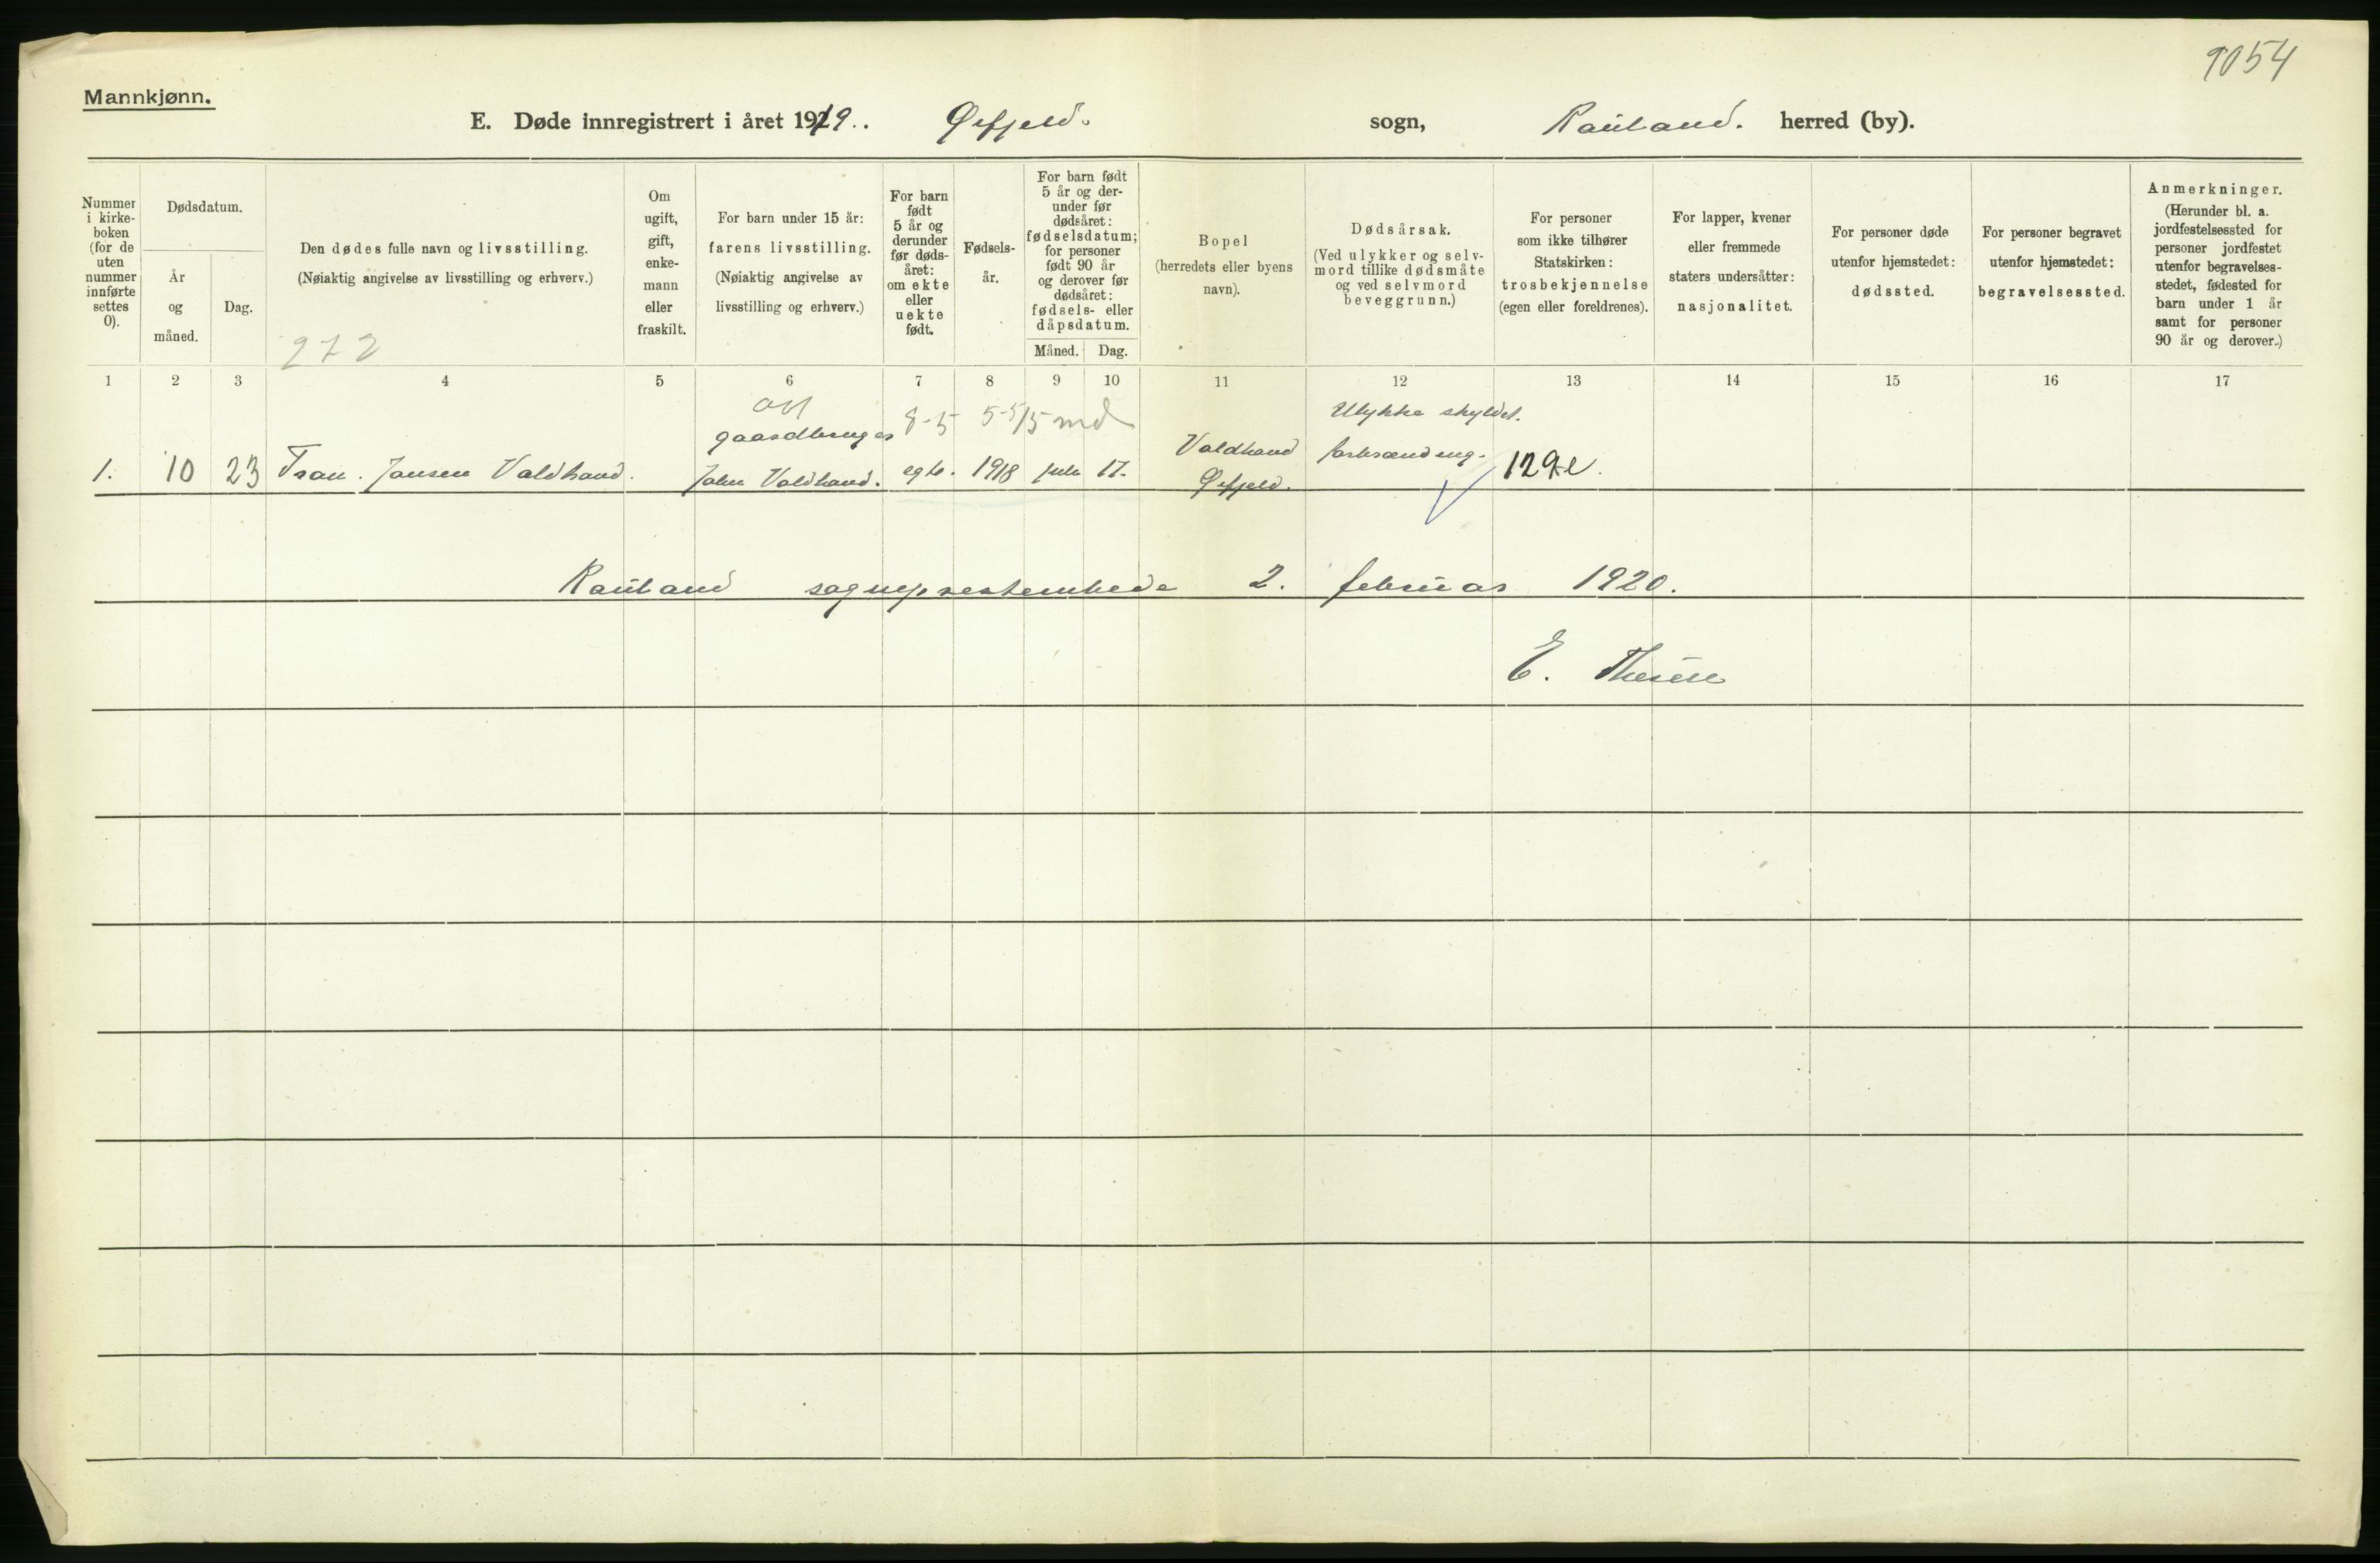 9054
Mannkjønn.
E. Døde innregistrert i året 1919.. Øifjeld. sogn, Rauland. herred (by).
Nummer i kirke- boken (for de uten nummer innførte settes 0).
Dødsdatum.
År og måned.
Dag.
Den dødes fulle navn og livsstilling.
(Nøiaktig angivelse av livsstilling og erhverv.)
272
Om ugift, gift, enke- mann eller fraskilt.
For barn under 15 år:
farens livsstilling.
(Nøiaktig angivelse av
livsstilling og erhverv.)
For barn født 5 år og derunder før døds- året: om ekte eller uekte født.
Fødsels- år.
For barn født 5 år og der- under før dødsåret: fødselsdatum; for personer født 90 år og derover før dødsåret: fødsels- eller dåpsdatum.
Måned. Dag.
Bopel
(herredets eller byens
navn).
Dødsårsak.
(Ved ulykker og selv-
mord tillike dødsmåte
og ved selvmord
beveggrunn.)
For personer
som ikke tilhører
Statskirken:
trosbekjennelse
(egen eller foreldrenes).
For lapper, kvener
eller fremmede
staters undersåtter:
nasjonalitet.
For personer døde
utenfor hjemstedet:
dødssted.
For personer begravet
utenfor hjemstedet:
begravelsessted.
Anmerkninger.
(Herunder bl. a.
jordfestelsessted for
personer jordfestet
utenfor begravelses-
stedet, fødested for
barn under 1 år
samt for personer
90 år og derover.)
1 2 3 4 5 6 7 8 9 10 11 12 13 14 15 16 17
gaardbruger 8-5 5-5/15 md Ulykke skyldet.
Valdhaud forbrænding.
1. 10 23 Jonsen Valdhaud. John Valdhaud. egte. 1918 juli 17. Øifjeld. 129e.
Rauland sogneprestembede 2. februar 1920.
E. Thesen